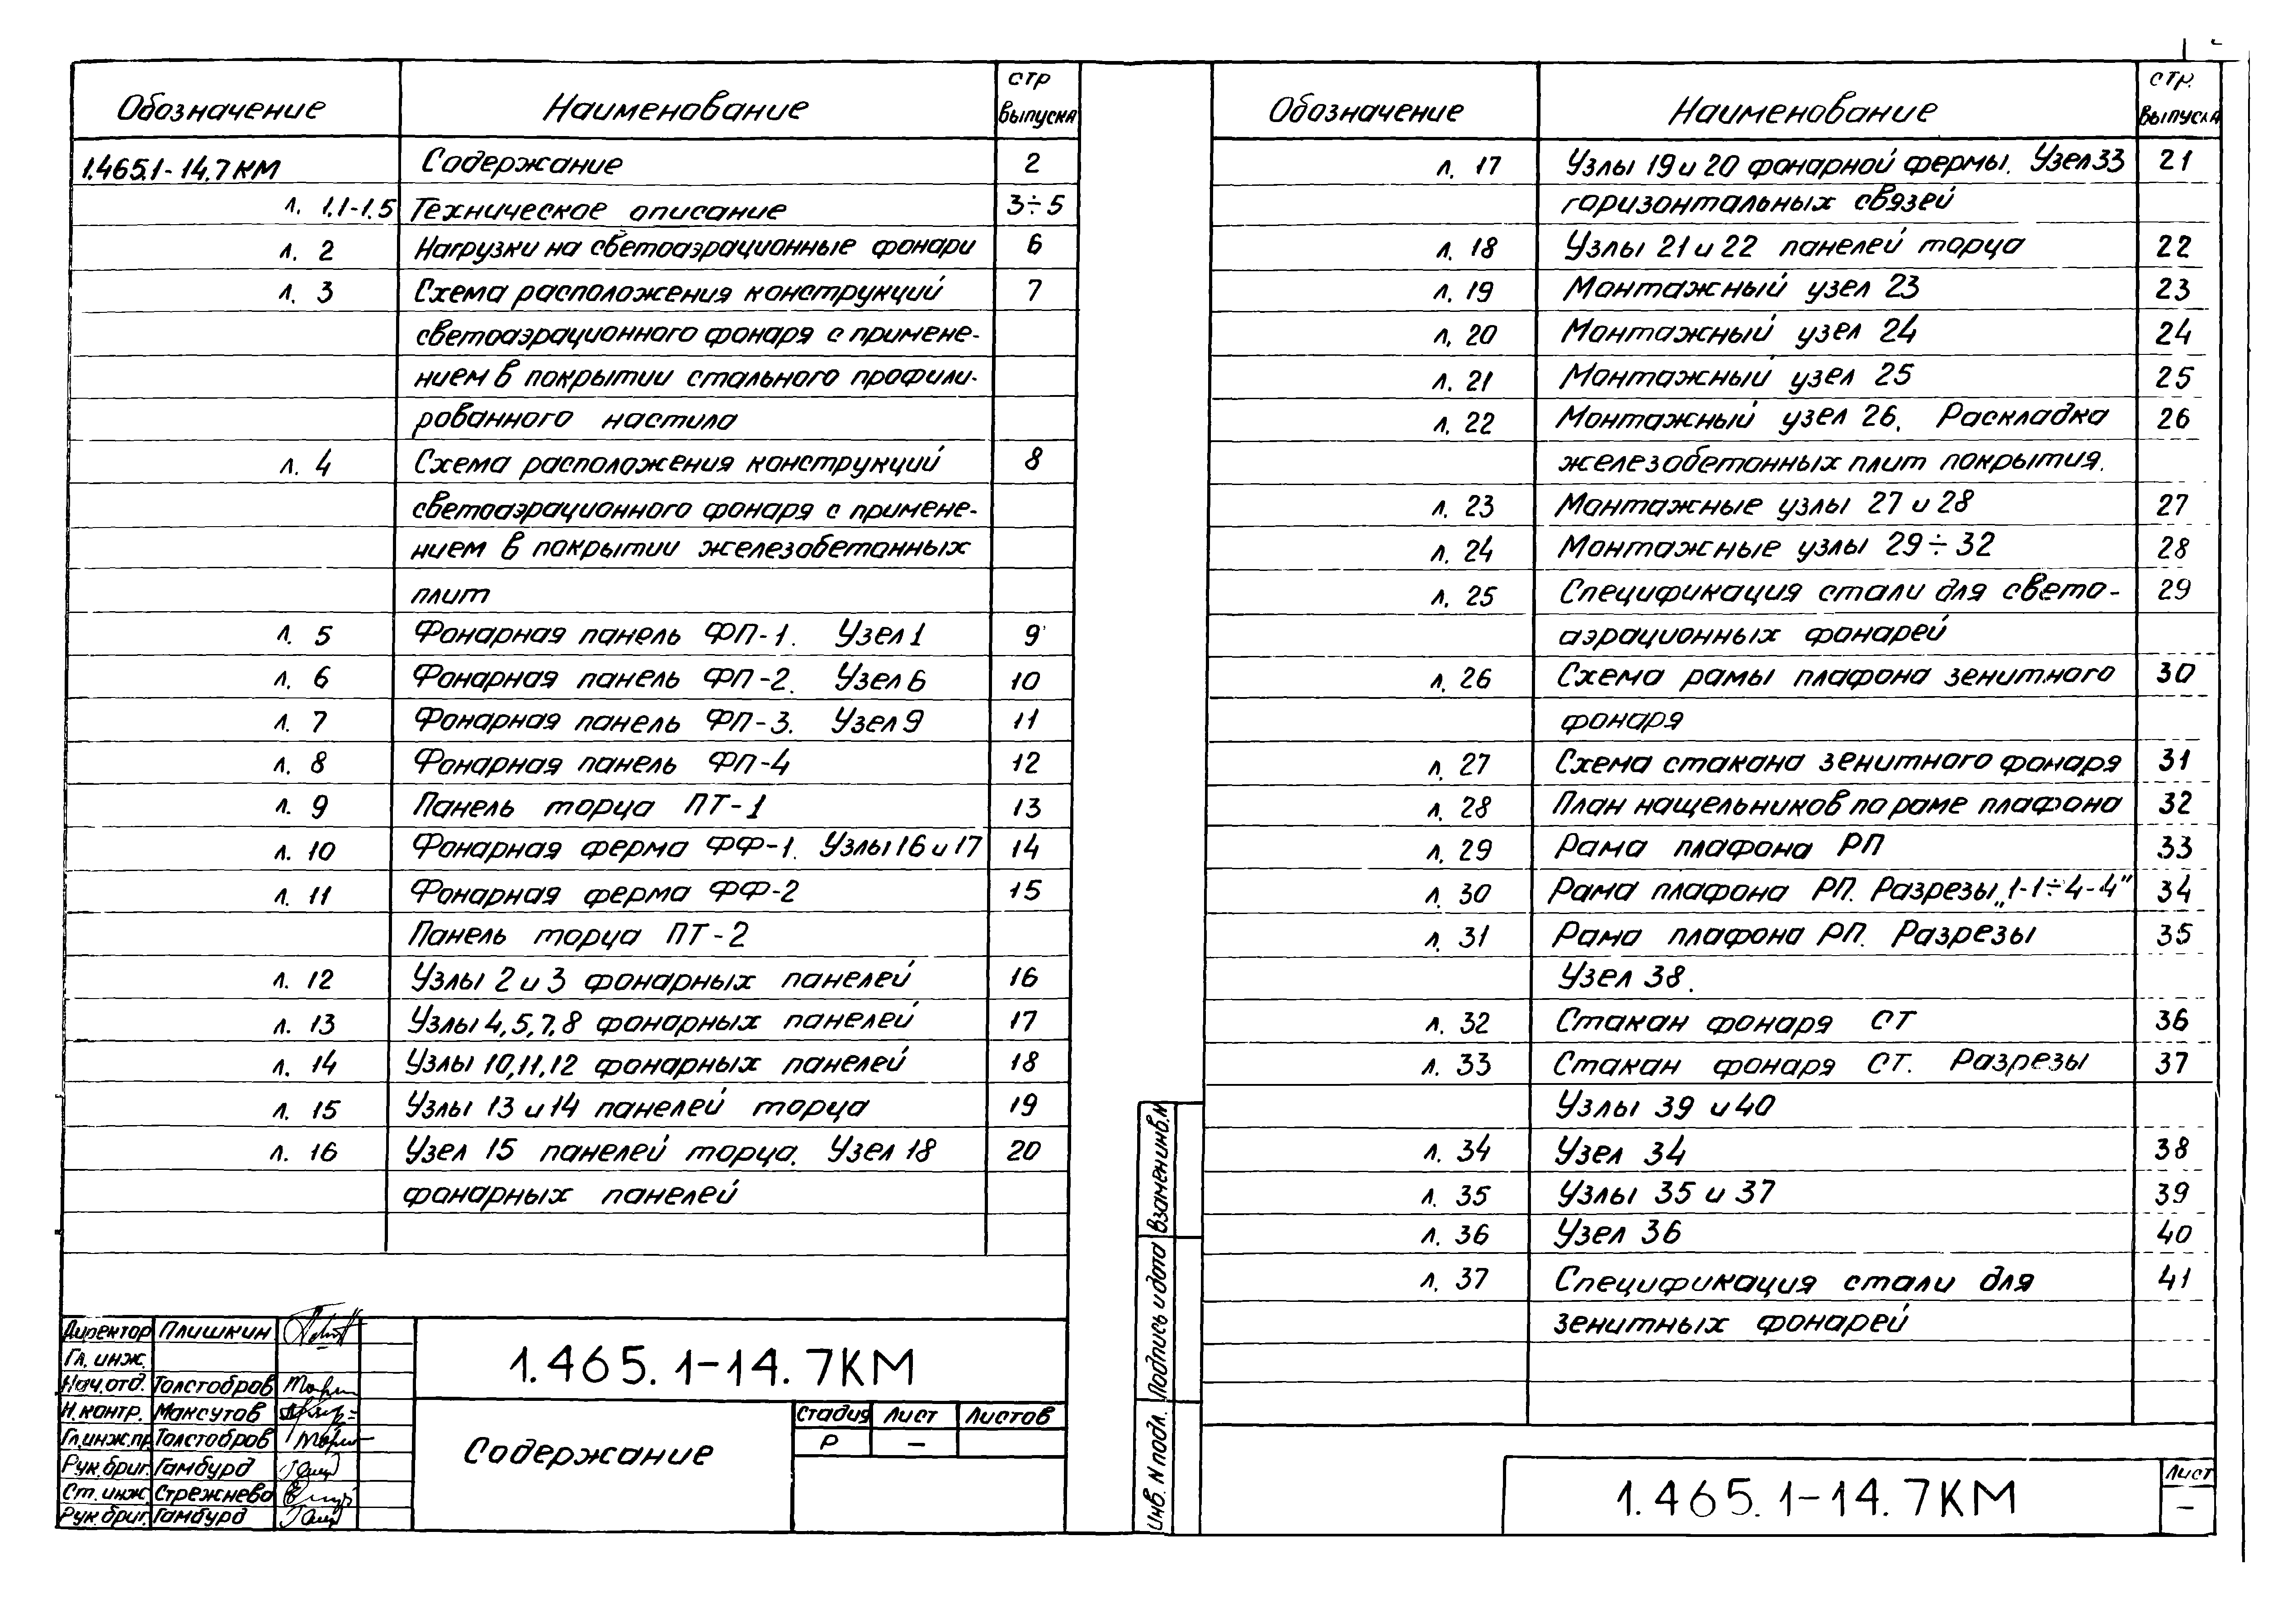 Обозначение Наименование стр выпуска
1.465.1-14.7КМ Содержание 2
л. 1.1-1.5 Техническое описание 3÷5
л. 2 Нагрузки на светоаэрационные фонари 6
л. 3 Схема расположения конструкций 7
светоаэрационного фонаря с примене-
нием в покрытии стального профили-
рованного настила
л. 4 Схема расположения конструкций 8
светоаэрационного фонаря с примене-
нием в покрытии железобетонных
плит
л. 5 Фонарная панель ФП-1. Узел 1 9
л. 6 Фонарная панель ФП-2. Узел 6 10
л. 7 Фонарная панель ФП-3. Узел 9 11
л. 8 Фонарная панель ФП-4 12
л. 9 Панель торца ПТ-1 13
л. 10 Фонарная ферма ФФ-1. Узлы 16 и 17 14
л. 11 Фонарная ферма ФФ-2 15
Панель торца ПТ-2
л. 12 Узлы 2 и 3 фонарных панелей 16
л. 13 Узлы 4,5,7,8 фонарных панелей 17
л. 14 Узлы 10,11,12 фонарных панелей 18
л. 15 Узлы 13 и 14 панелей торца 19
л. 16 Узел 15 панелей торца. Узел 18 20
фонарных панелей
Директор Плишкин
Гл. инж.
Нач. отд. Толстобров
Н. контр. Максутов
Гл.инж.пр. Толстобров
Рук. бриг. Гамбурд
Ст. инж. Стрежнева
Рук. бриг. Гамбурд
1.465.1-14.7КМ
Содержание
Стадия Лист Листов
Р –
Обозначение Наименование стр. выпуска
л. 17 Узлы 19 и 20 фонарной фермы. Узел 33 21
горизонтальных связей
л. 18 Узлы 21 и 22 панелей торца 22
л. 19 Монтажный узел 23 23
л. 20 Монтажный узел 24 24
л. 21 Монтажный узел 25 25
л. 22 Монтажный узел 26. Раскладка 26
железобетонных плит покрытия.
л. 23 Монтажные узлы 27 и 28 27
л. 24 Монтажные узлы 29÷32 28
л. 25 Спецификация стали для свето- 29
аэрационных фонарей
л. 26 Схема рамы плафона зенитного 30
фонаря
л. 27 Схема стакана зенитного фонаря 31
л. 28 План нащельников по раме плафона 32
л. 29 Рама плафона РП 33
л. 30 Рама плафона РП. Разрезы „1-1÷4-4" 34
л. 31 Рама плафона РП. Разрезы 35
Узел 38.
л. 32 Стакан фонаря СТ 36
л. 33 Стакан фонаря СТ. Разрезы 37
Узлы 39 и 40
л. 34 Узел 34 38
л. 35 Узлы 35 и 37 39
л. 36 Узел 36 40
л. 37 Спецификация стали для 41
зенитных фонарей
Взамен инв. N
Подпись и дата
Инв. N подл.
1.465.1-14.7КМ
Лист
–